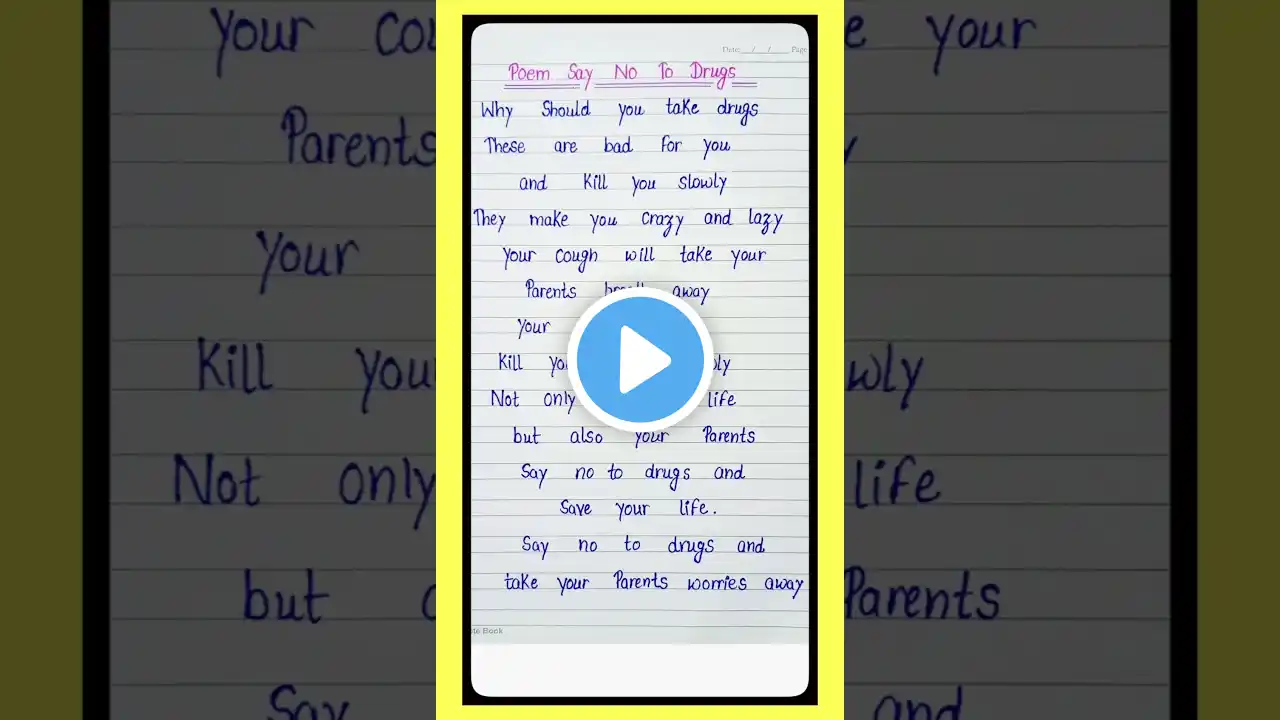 Date:__/__/____ Page
Poem Say No To Drugs
Why Should you take drugs
These are bad for you
and Kill you slowly
They make you crazy and lazy
Your cough will take your
Parents away
Your
Kill
Not only life
but also your Parents
Say no to drugs and
Save your life.
Say no to drugs and
take your Parents worries away
Book